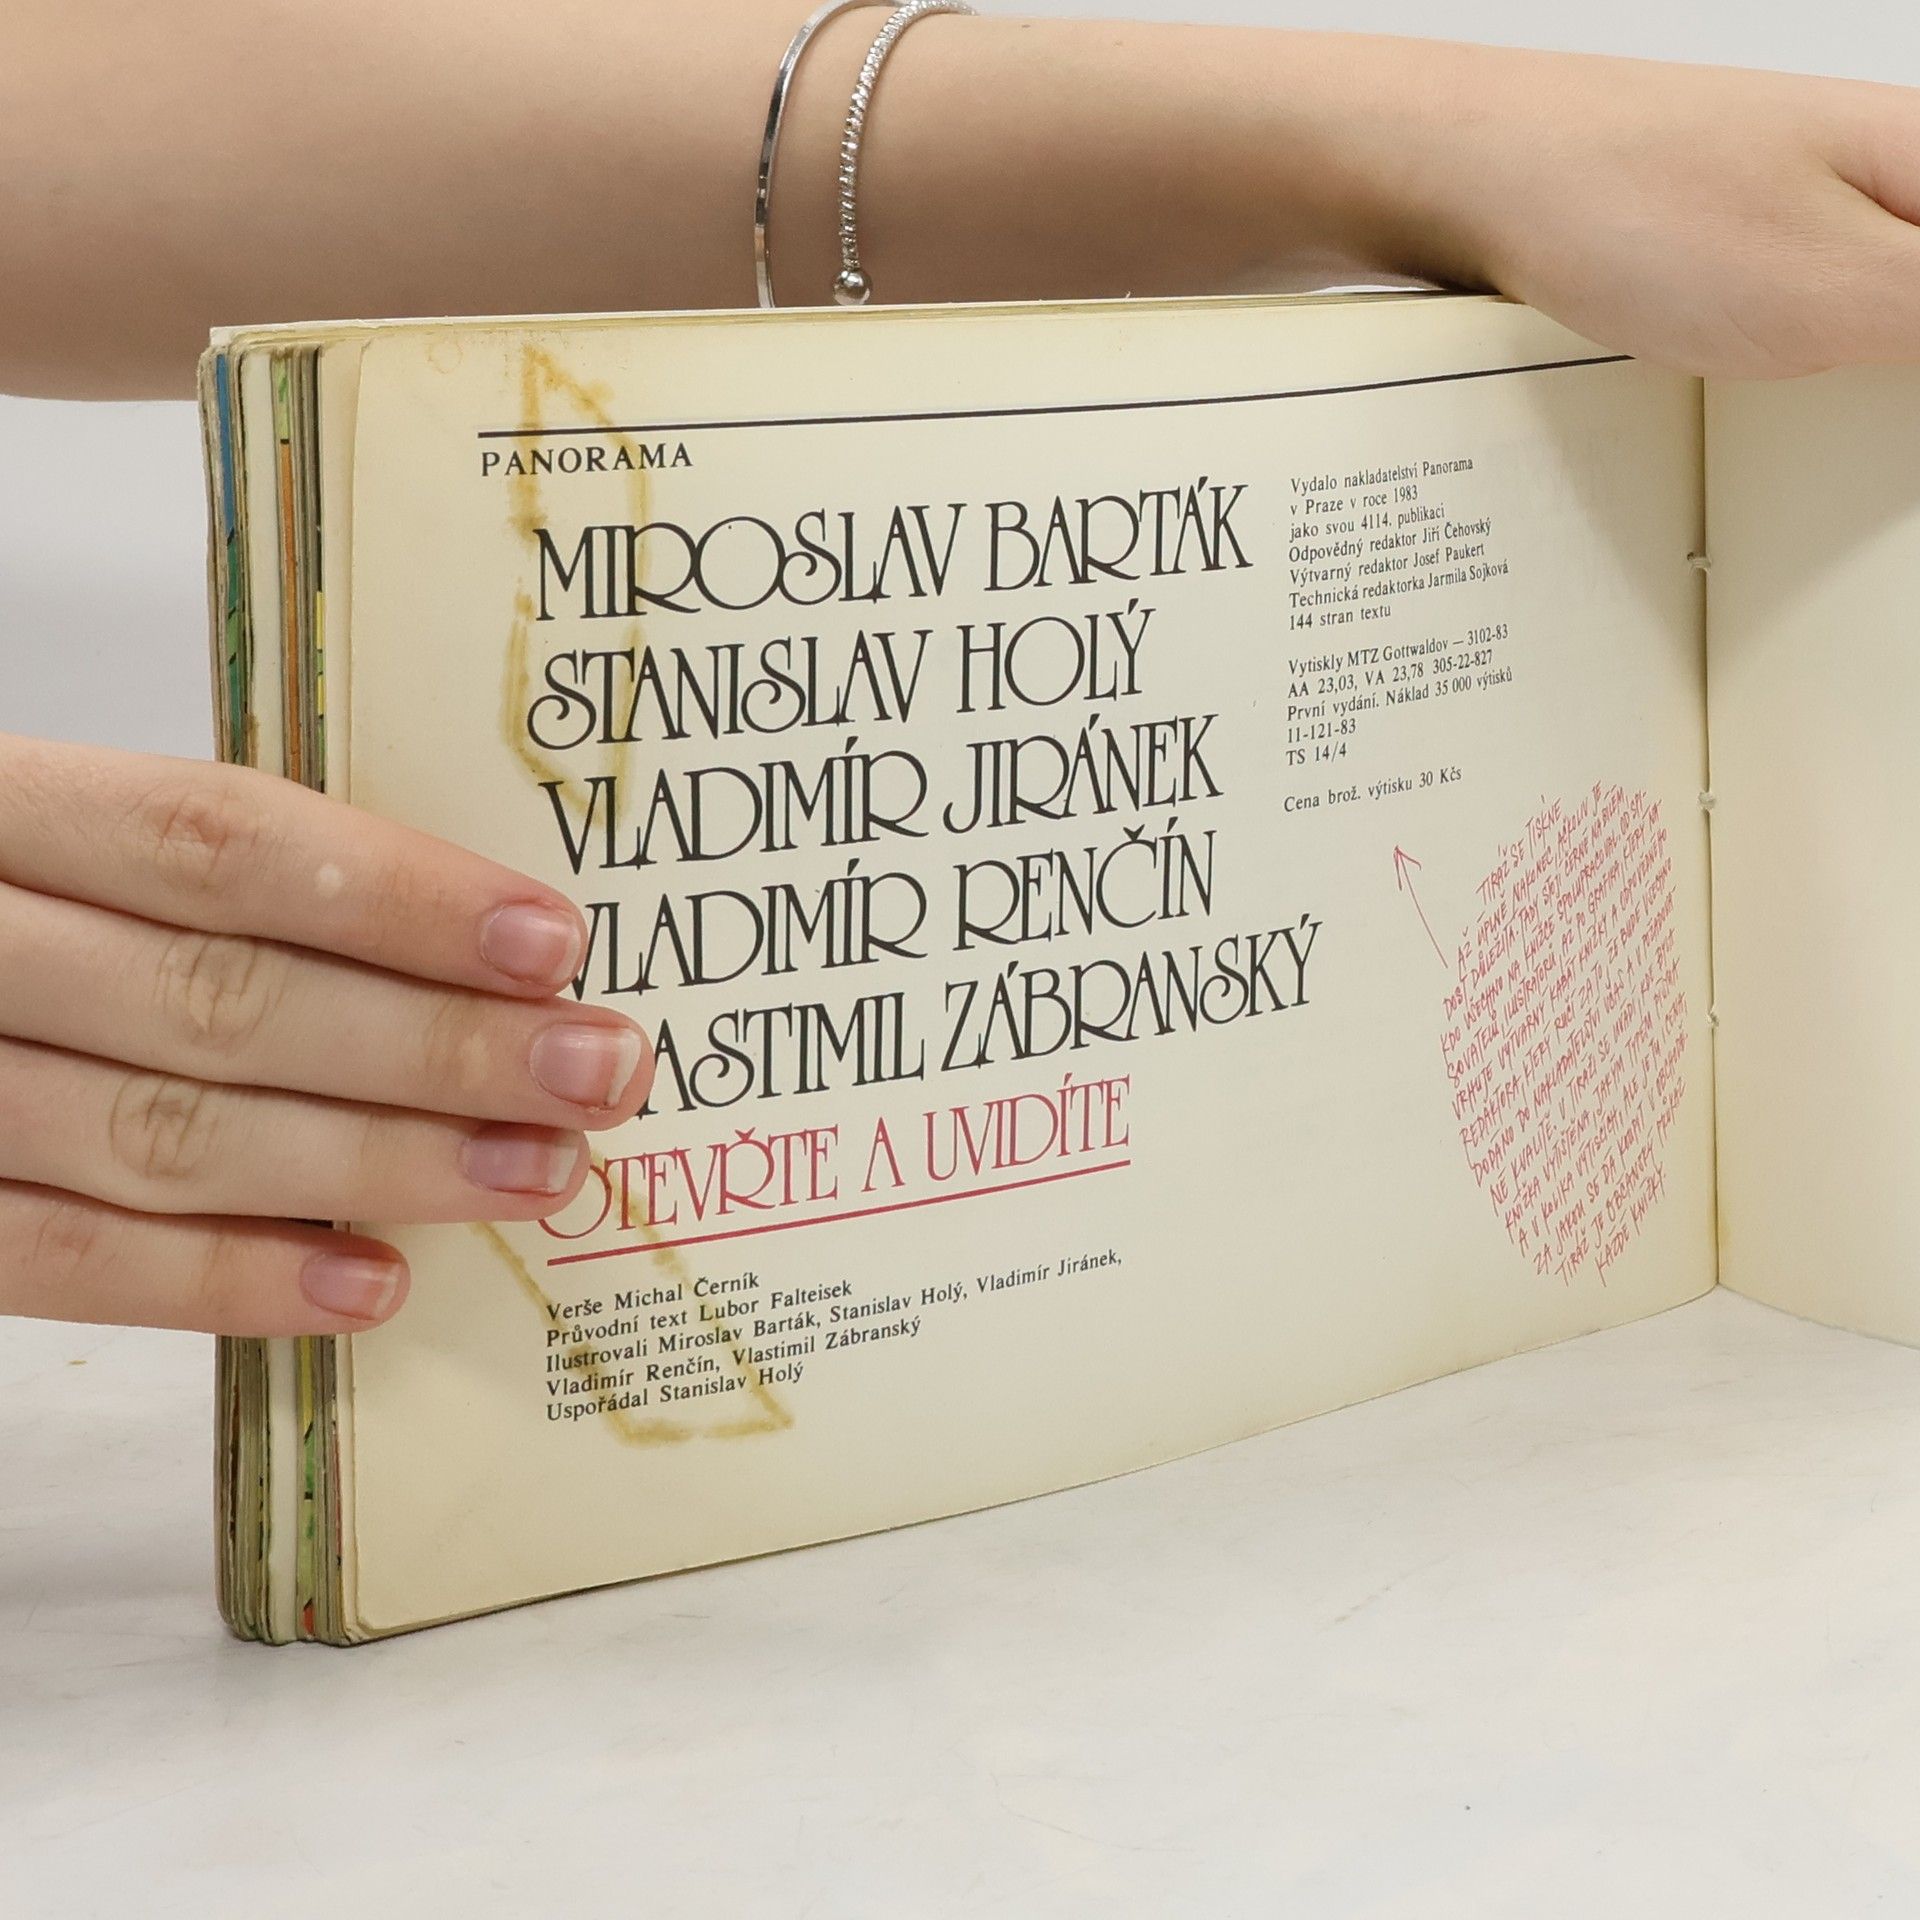 PANORAMA
MIROSLAV BARTÁK
STANISLAV HOLÝ
VLADIMÍR JIRÁNEK
VLADIMÍR RENČÍN
ASTIMIL ZÁBRANSKÝ
OTEVŘTE A UVIDÍTE
Verše Michal Černík
Průvodní text Lubor Falteisek
Ilustrovali Miroslav Barták, Stanislav Holý, Vladimír Jiránek,
Vladimír Renčín, Vlastimil Zábranský
Uspořádal Stanislav Holý
Vydalo nakladatelství Panorama
v Praze v roce 1983
jako svou 4114. publikaci
Odpovědný redaktor Jiří Čehovský
Výtvarný redaktor Josef Paukert
Technická redaktorka Jarmila Sojková
144 stran textu
Vytiskly MTZ Gottwaldov — 3102-83
AA 23,03, VA 23,78 305-22-827
První vydání. Náklad 35 000 výtisků
11-121-83
TS 14/4
Cena brož. výtisku 30 Kčs
TIRÁŽ SE TISKNE
AŽ ÚPLNĚ NAKONEC, AČKOLIV JE
DOST DŮLEŽITÁ. TADY STOJÍ ČERNÉ NA BÍLÉM,
KDO VŠECHNO NA KNÍŽCE SPOLUPRACOVAL. OD SPI-
SOVATELŮ, ILUSTRÁTORŮ AŽ PO GRAFIKA, KTERÝ NA-
VRHUJE VÝTVARNÝ KABÁT KNÍŽKY A ODPOVĚDNÉHO
REDAKTORA, KTERÝ RUČÍ ZA TO, ŽE BUDE VŠECHNO
DODÁNO DO NAKLADATELSTVÍ VČAS A V POŽADOVA-
NÉ KVALITĚ. V TIRÁŽI SE UVÁDÍ, KDE BYLA
KNÍŽKA VYTIŠTĚNA, JAKÝM TYPEM PÍSMA
A V KOLIKA VÝTISCÍCH, ALE JE TU I CENA,
ZA JAKOU SE DÁ KOUPIT V OBCHODĚ.
TIRÁŽ JE OBČANSKÝ PRŮKAZ
KAŽDÉ KNÍŽKY.